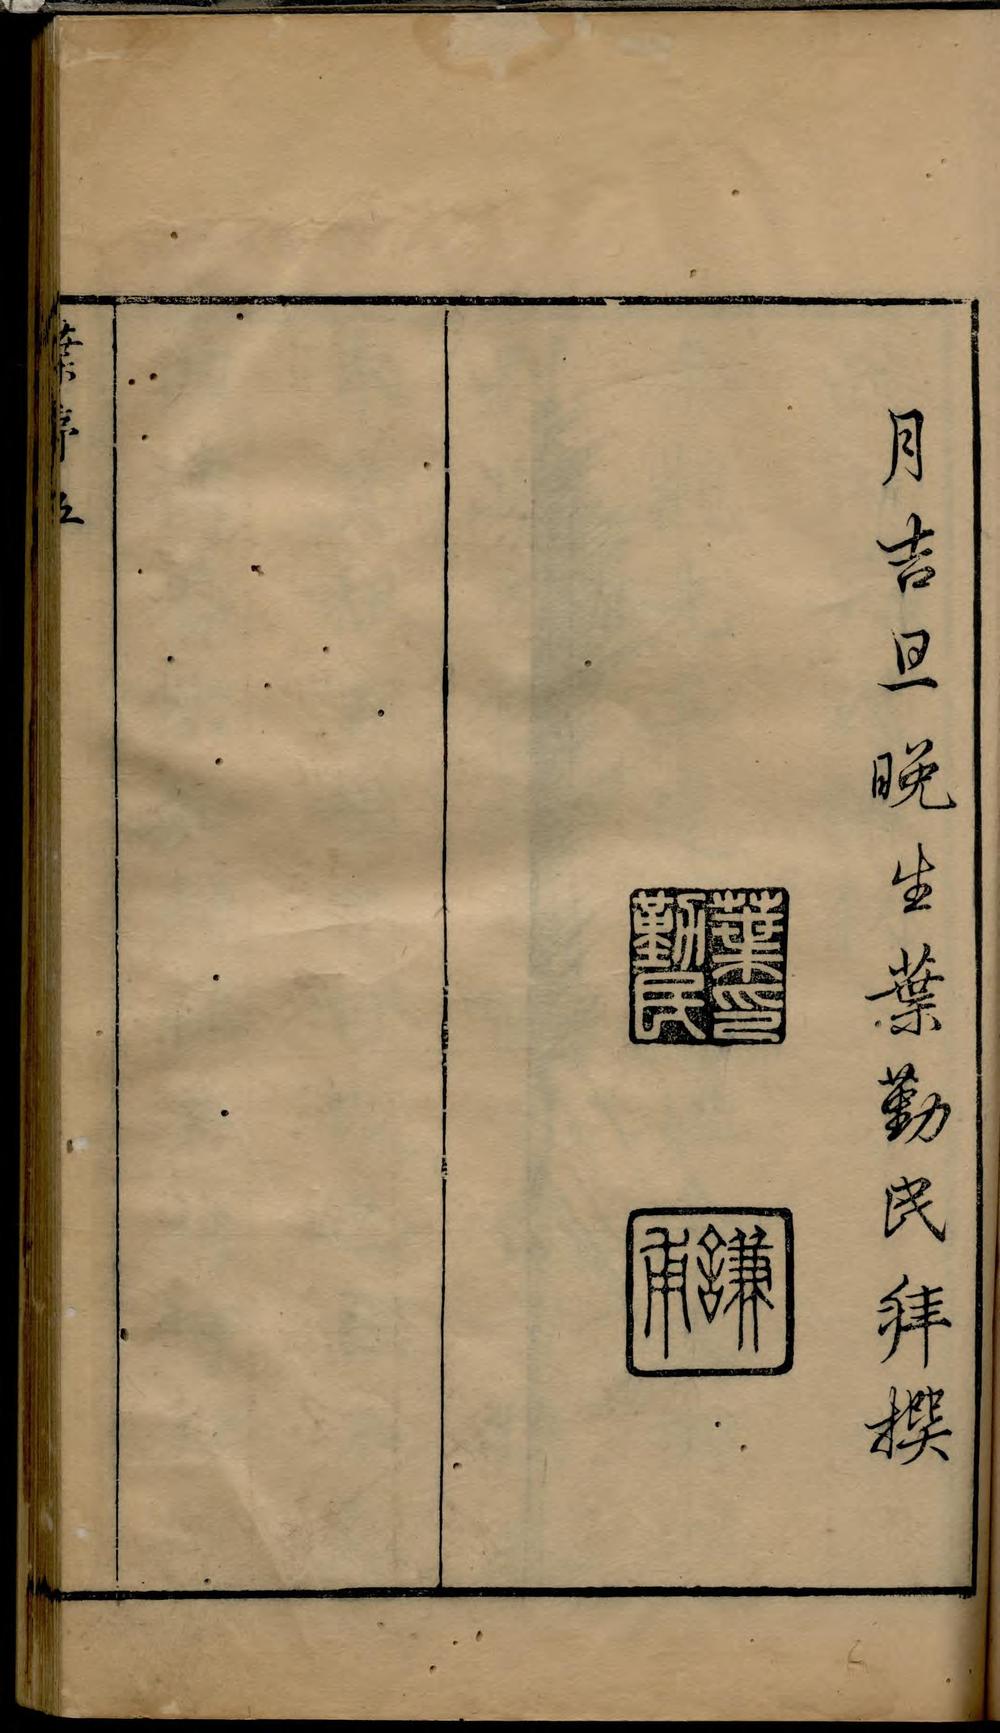 月吉旦晚生葉勤民拜撰
葉印
勤民
謙
甫
葉序 五